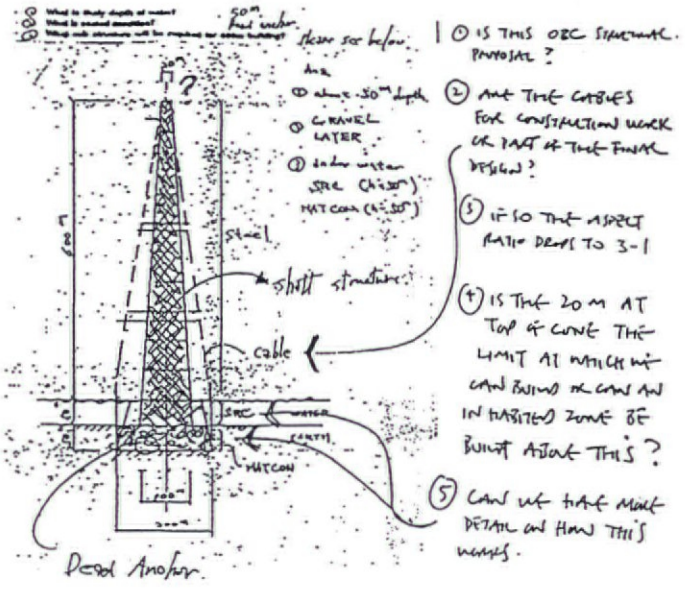 ① What is study depth of water?
50m
② What is seabed condition?
③ What sub structure will be required for
Please see below
Ans
① about 50m depth
② GRAVEL
LAYER
③ Under water
SRC (h=50m)
MATCON (h=50m)
20m
?
600m
Steel
shell structure
cable
SRC
WATER
EARTH
MATCON
100m
200m
Dead Anchor
① IS THIS OBC STRUCTURAL
PROPOSAL?
② ARE THE CABLES
FOR CONSTRUCTION WORK
OR PART OF THE FINAL
DESIGN?
③ IF SO THE ASPECT
RATIO DROPS TO 3-1
④ IS THE 20M AT
TOP OF CONE THE
LIMIT AT WHICH WE
CAN BUILD OR CAN AN
INHABITED ZONE BE
BUILT ABOVE THIS?
⑤ CAN WE HAVE MORE
DETAIL ON HOW THIS
WORKS.